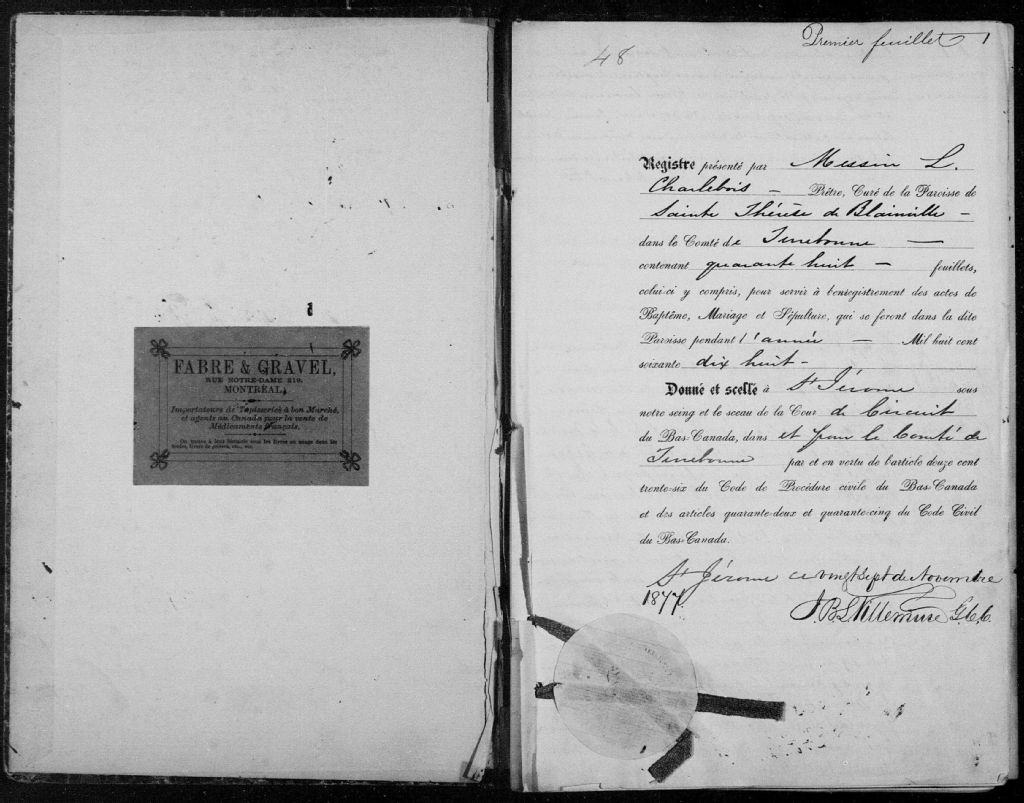 FABRE & GRAVEL,
RUE NOTRE-DAME 219.
MONTRÉAL,
Importateurs de Tapisseries à bon Marché,
et agents au Canada pour la vente de
Médicaments Français.
On trouve à leur librairie tous les livres en usage dans les
écoles, livres de prières, etc., etc.
Premier feuillet 1
48
Registre présenté par Messire L.
Charlebois — Prêtre, Curé de la Paroisse de
Sainte Thérèse de Blainville —
dans le Comté de Terrebonne —
contenant quarante huit — feuillets,
celui-ci y compris, pour servir à l'enregistrement des actes de
Baptême, Mariage et Sépulture, qui se feront dans la dite
Paroisse pendant l'année — Mil huit cent
soixante dix huit —
Donné et scellé à St Jérome sous
notre seing et le sceau de la Cour de Circuit
du Bas-Canada, dans et pour le Comté de
Terrebonne par et en vertu de l'article douze cent
trente-six du Code de Procédure civile du Bas-Canada
et des articles quarante-deux et quarante-cinq du Code Civil
du Bas-Canada.
St Jérome ce vingt sept de Novembre
1877.
J.B.L. Villemure G.C.C.